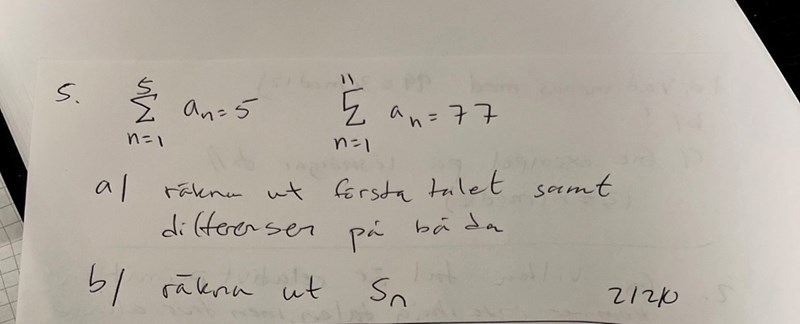 5. 5 ∑ n=1 aₙ = 5 11 ∑ n=1 aₙ = 77
a/ räkna ut första talet samt
differensen på båda
b/ räkna ut Sₙ 2/2/0